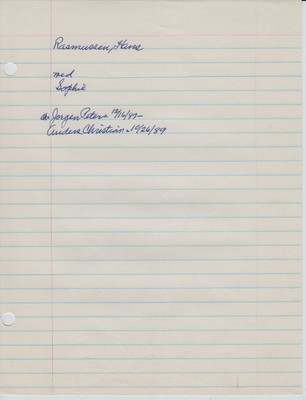 Rasmussen, Hans
med
Sophie
a. Jørgen Peter - 12/16/87-
Anders Christian - 10/26/89